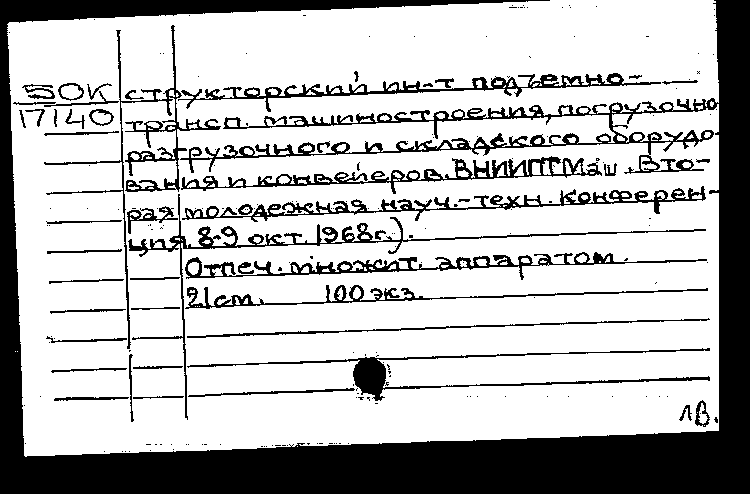 БОК структорский ин-т подъемно-
17140 трансп. машиностроения, погрузочно
разгрузочного и складского оборудо-
вания и конвейеров. ВНИИПТМаш. Вто-
рая молодежная науч.-техн. конферен-
ция. 8-9 окт. 1968г.).
Отпеч. множит. аппаратом.
21см. 100 экз.
ЛВ.